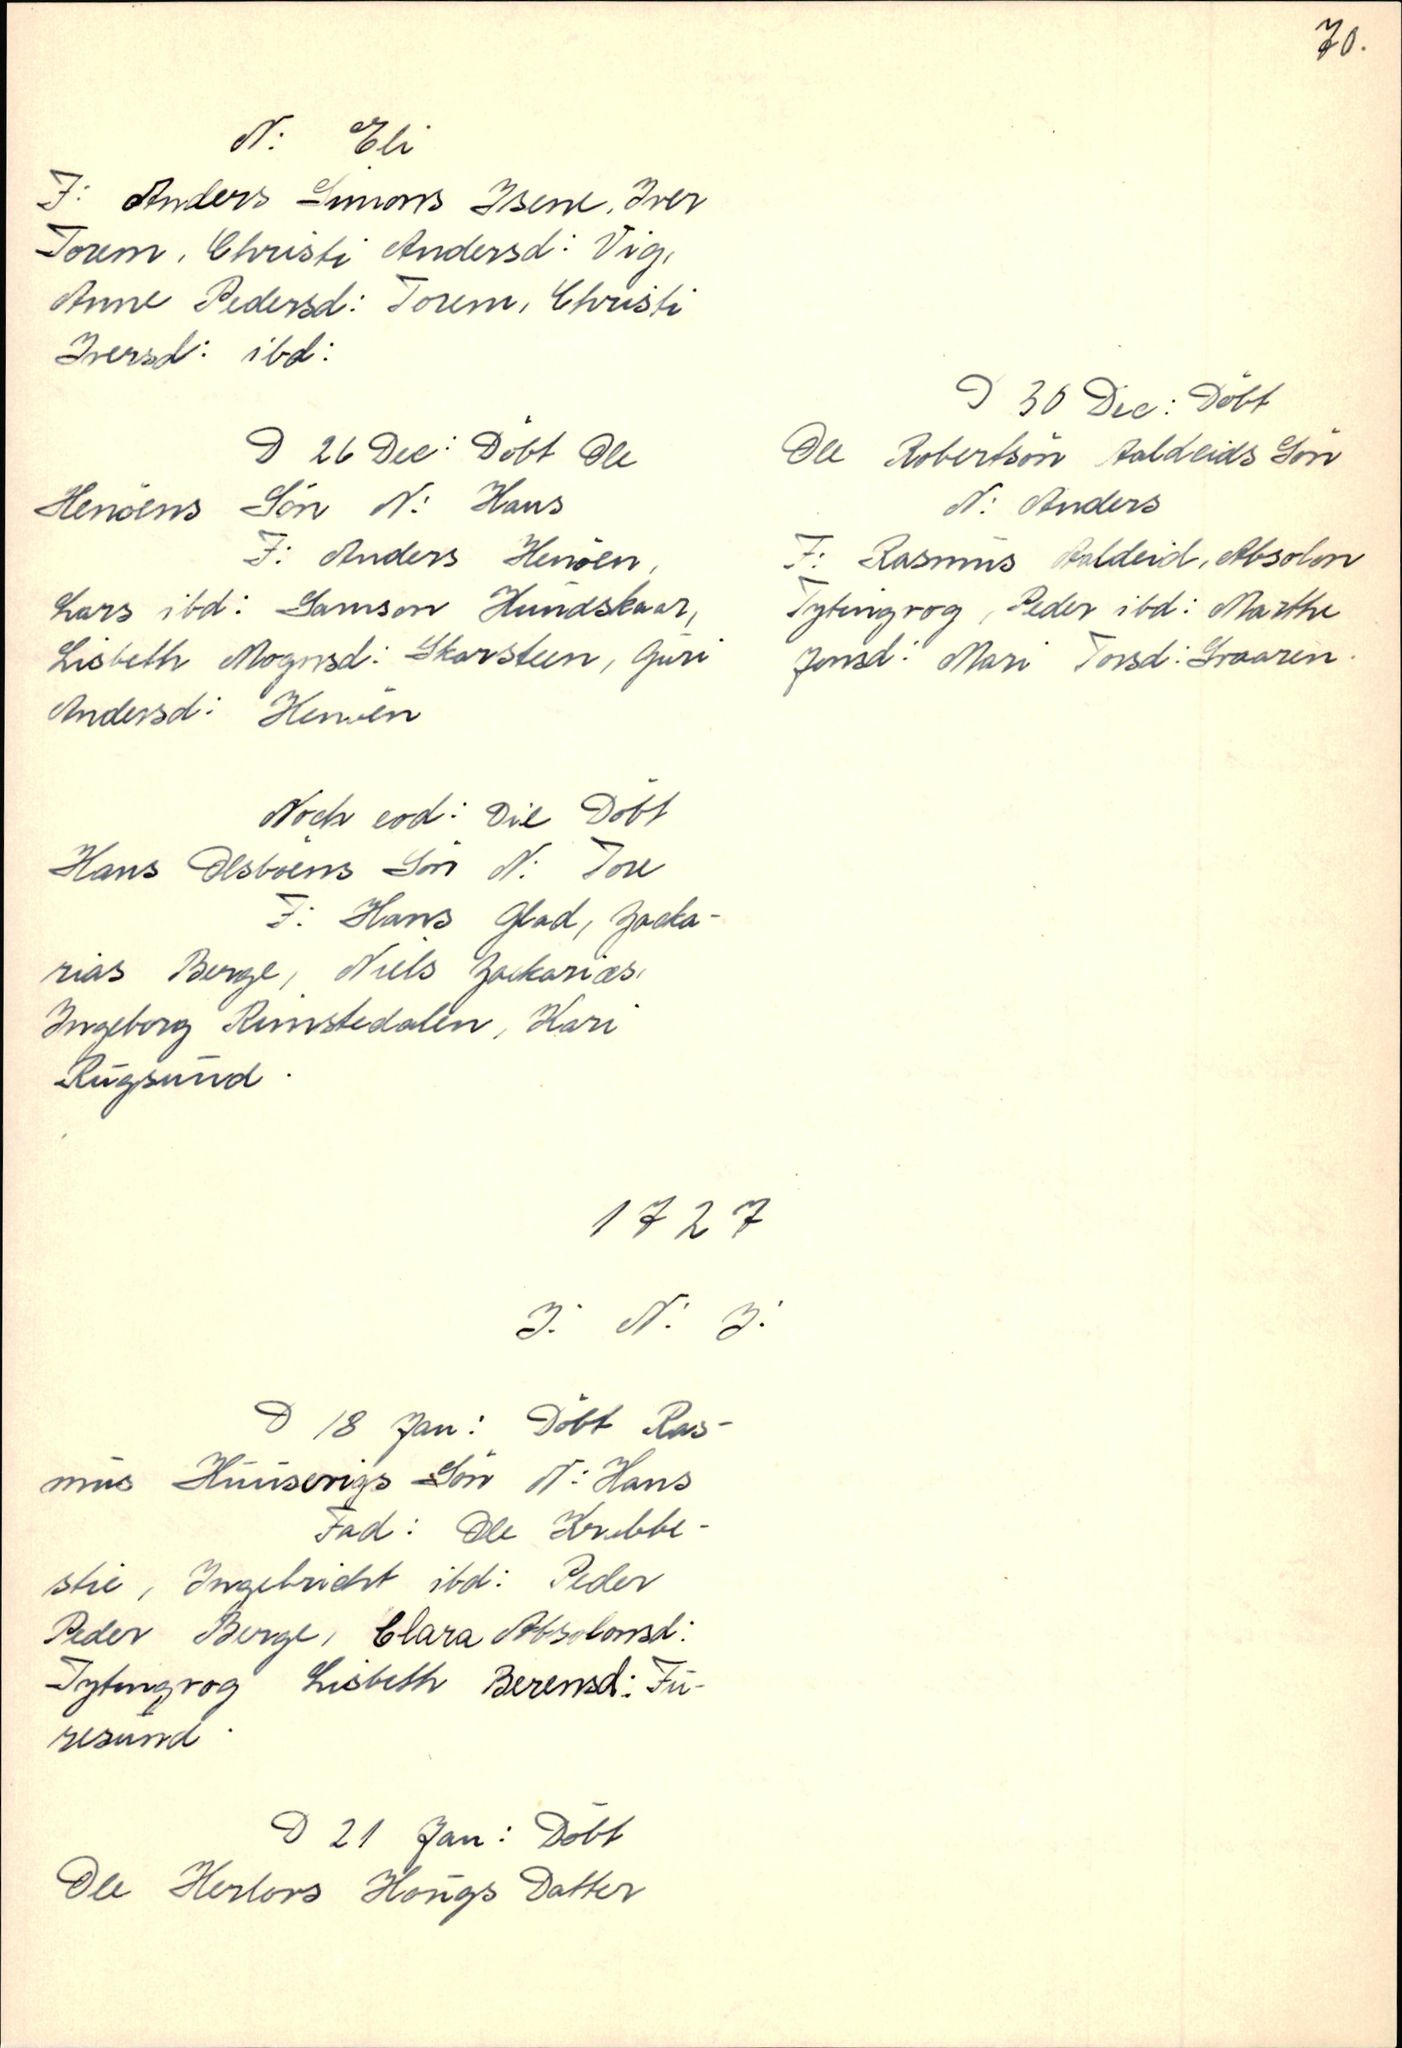 70.
N: Eli
F: Anders Simons Isene, Iver
Torem, Christi Andersd: Vig,
Anne Pedersd: Torem, Christi
Iversd: ibd:
D 26 Dec: Döbt Ole
Henöens Sön N: Hans
F: Anders Henöen,
Lars ibd: Samson Hundskaar,
Lisbeth Mognsd: Skarsteen, Guri
Andersd: Henöen
Noch eod: Die Döbt
Hans Olsböens Sön N: Tore
F: Hans Glad, Zacka-
rias Berge, Niels Zackarias,
Ingeborg Rimstedalen, Kari
Rugsund.
D 30 Dec: Döbt
Ole Robertsön Aaldeids Sön
N: Anders
F: Rasmus Aaldeid, Absolon
Tytingvog, Peder ibd: Marthe
Jonsd: Mari Torsd: Svaaren.
1727
J: N: J:
D 18 Jan: Döbt Ras-
mus Huusevigs Sön N: Hans
Fad: Ole Krabbe-
stie, Ingebricht ibd: Peder
Peder Berge, Clara Absolonsd:
Tytingvog Lisbeth Berensd: Fu-
resund.
D 21 Jan: Döbt
Ole Herlovs Hougs Datter